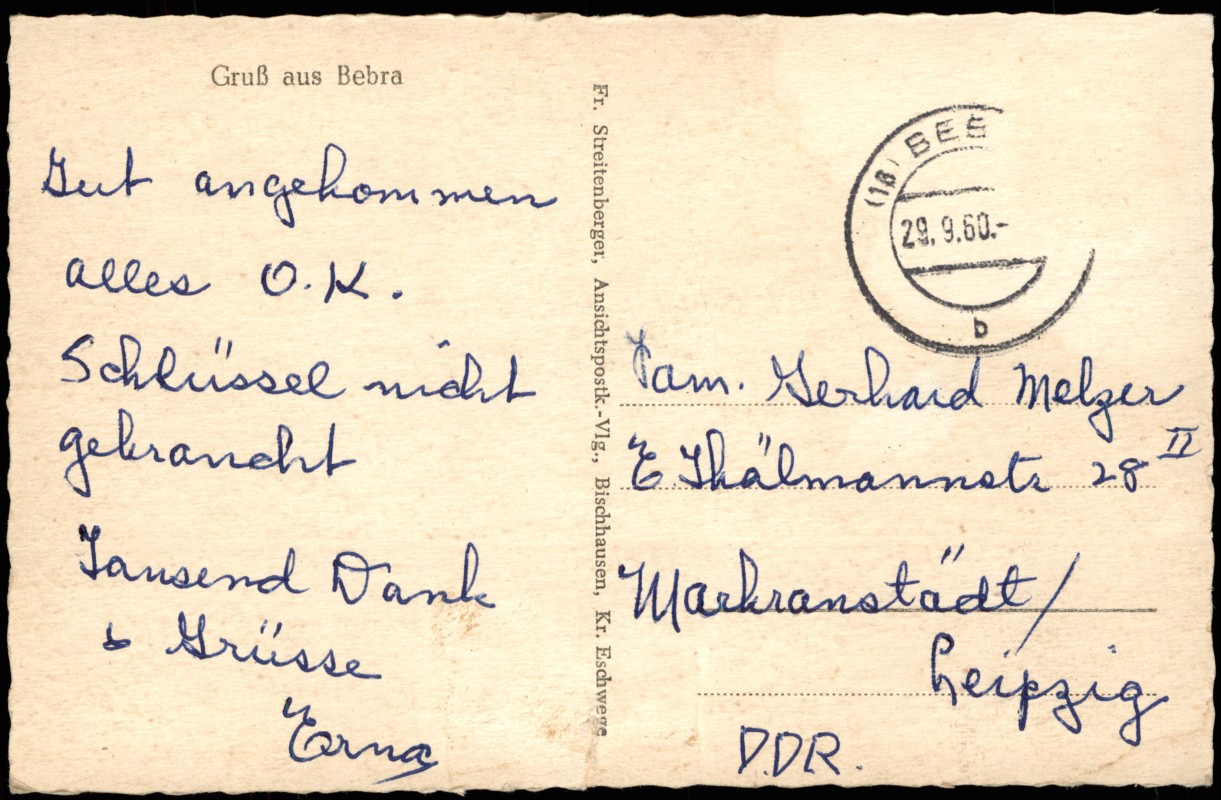 Gruß aus Bebra
Gut angekommen
alles O.K.
Schlüssel nicht
gebraucht
Tausend Dank
& Grüsse
Erna
Fr. Streitenberger, Ansichtspostk.-Vlg., Bischhausen, Kr. Eschwege
(16) BEB
29.9.60.-
b
Fam. Gerhard Melzer
E. Thälmannstr 28 II
Markranstädt/
Leipzig
D.D.R.